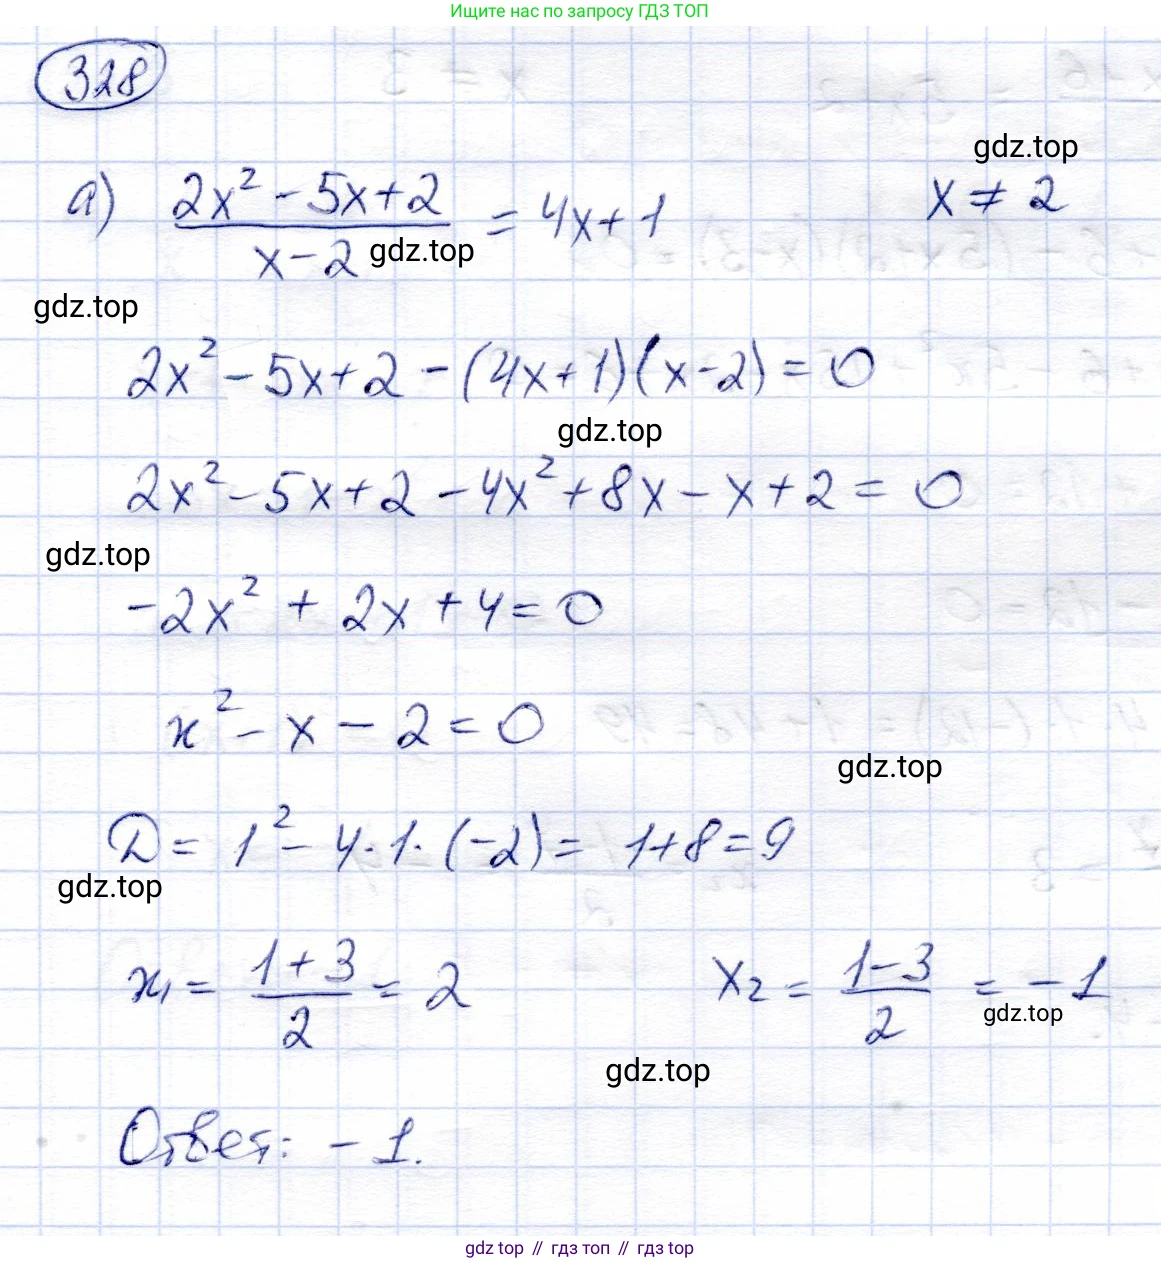 Ищите нас по запросу ГДЗ ТОП
328
gdz.top
а) (2x² - 5x + 2)/(x - 2) = 4x + 1    x ≠ 2
gdz.top
gdz.top
2x² - 5x + 2 - (4x + 1)(x - 2) = 0
gdz.top
2x² - 5x + 2 - 4x² + 8x - x + 2 = 0
gdz.top
-2x² + 2x + 4 = 0
x² - x - 2 = 0
gdz.top
D = 1² - 4 · 1 · (-2) = 1 + 8 = 9
gdz.top
x₁ = (1 + 3)/2 = 2    x₂ = (1 - 3)/2 = -1
gdz.top
gdz.top
Ответ: -1.
gdz top // гдз топ // gdz top